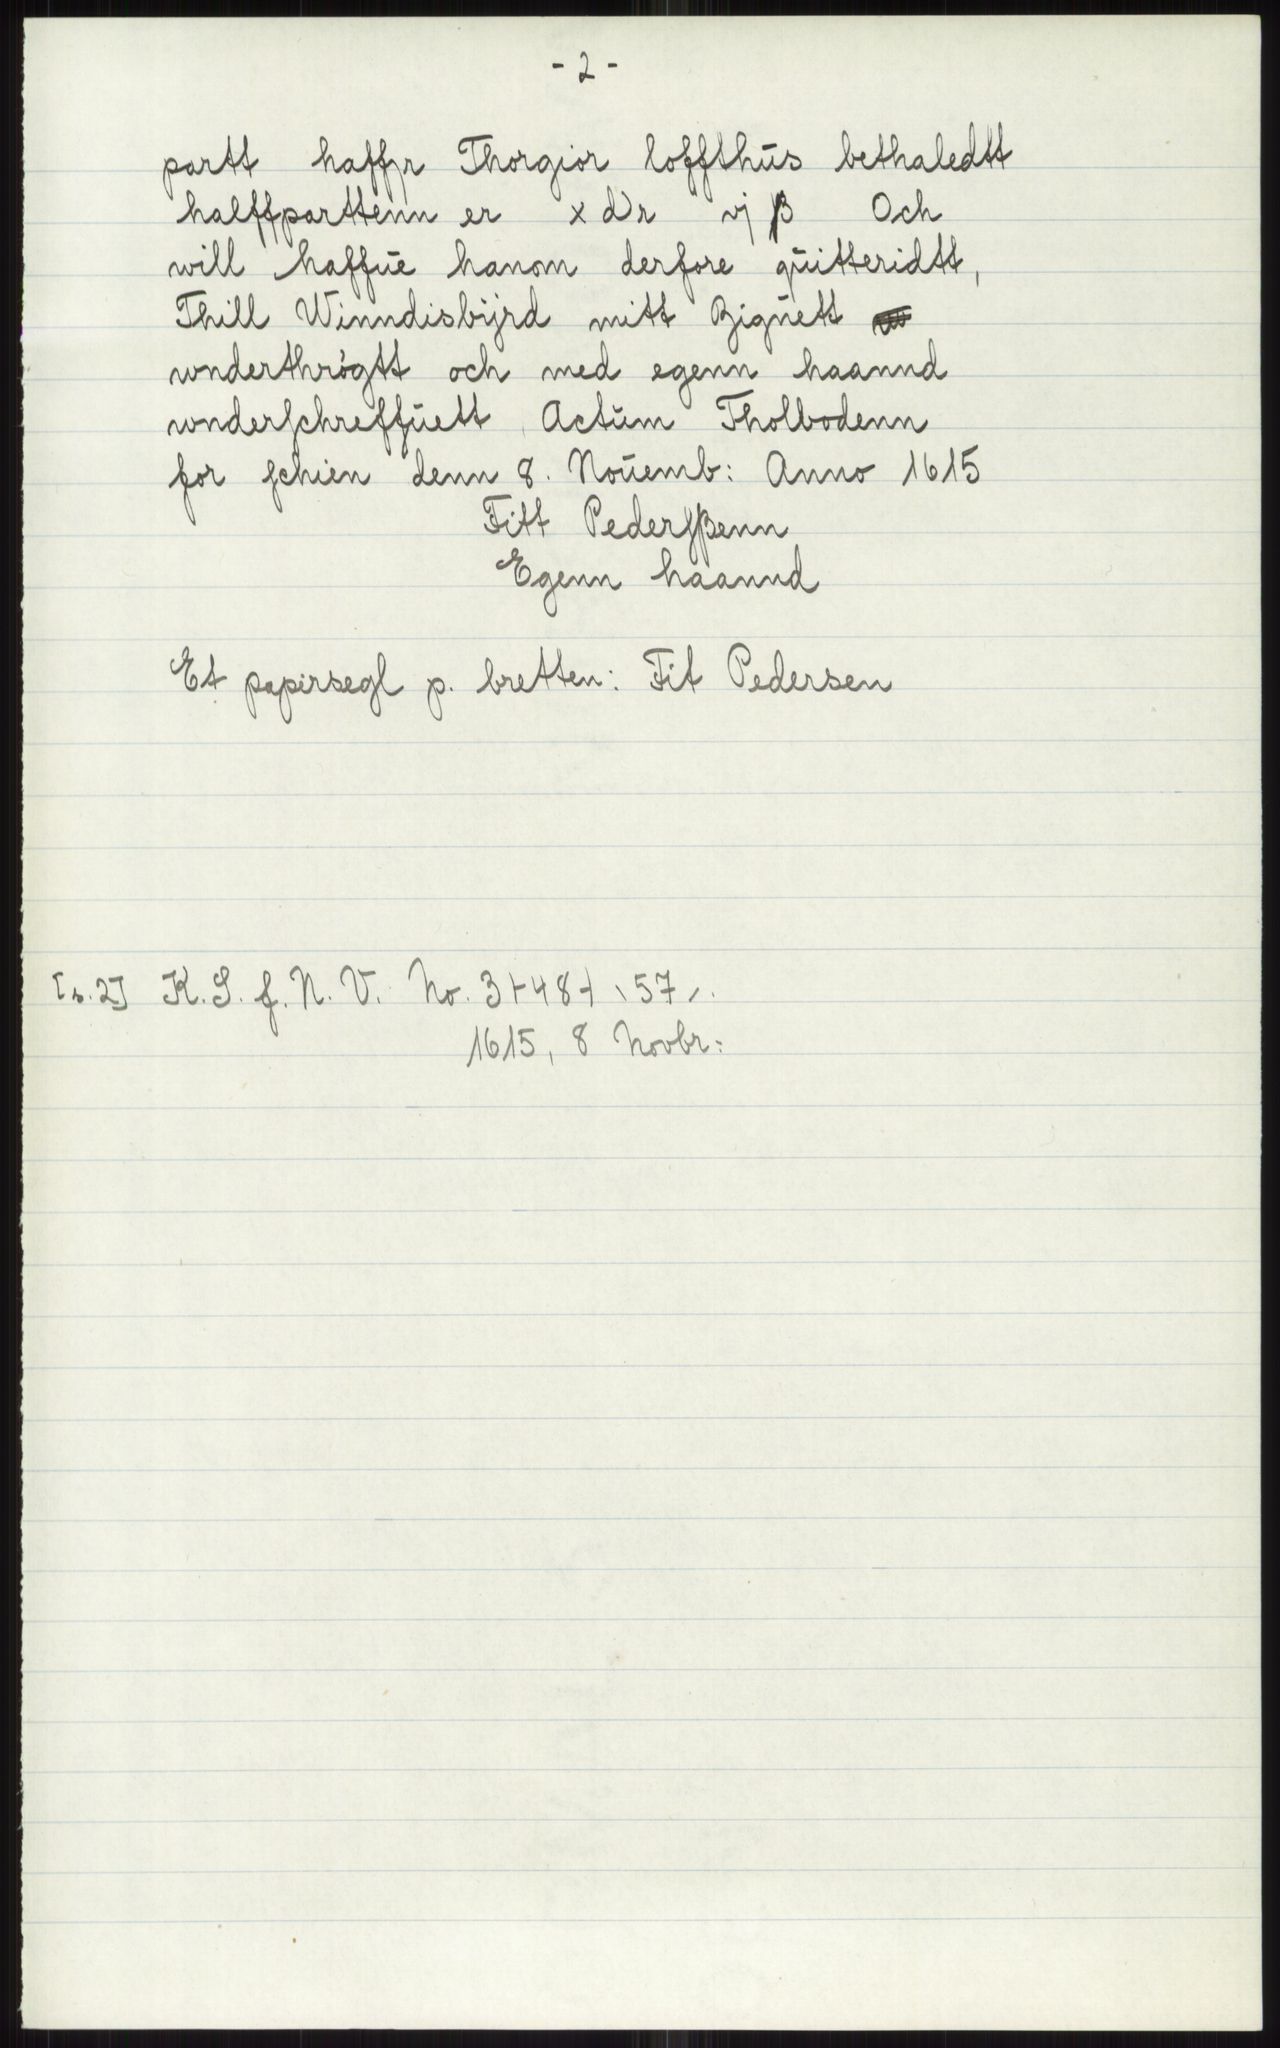 - 2 -
partt haffr Thorgior loffthús bethaledtt
halffparttenn er x dr vj β Och
will haffúe hanom derfore qúitteridtt,
Thill Winndisbijrd mitt Zignett
wnderthrögtt och med egenn haannd
wnderschreffúett Actúm Tholbodenn
for schien denn 8. Noúemb: Anno 1615
Fitt Pedersβenn
Egenn haannd
Et papirsegl p. bretten: Fit Pedersen
[s. 2] K. S. f. N. V. No. 3+48+ \57/.
1615, 8 Novbr: